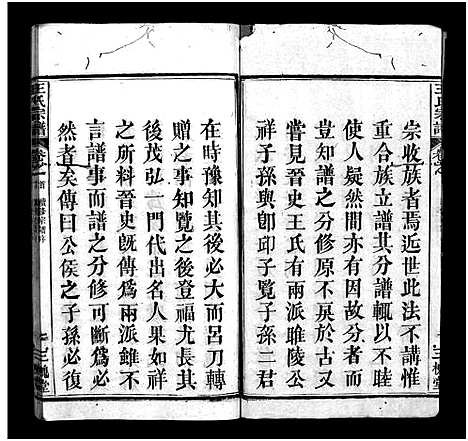 宗收族者焉近世此法不講惟
重合族立譜其分譜輒以不睦
使人疑然間亦有因故分者而
究無害於分修原不異於古又
嘗見晉史王氏有兩派睢陵公
祥子孫與卽邱子覽子孫二君
在時豫知其後必大而呂刀轉
贈之事知覽之後登福尤長其
後茂弘一門代出名人果如祥
之所料晉史旣傳爲兩派雖不
言譜事而譜之分修可斷爲必
然者矣傳曰公侯之子孫必復
王氏宗譜
三槐堂